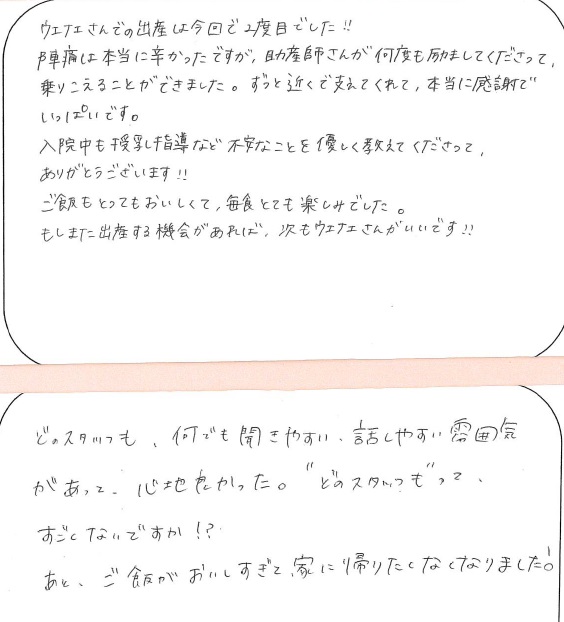 ウエナエさんでの出産は今回で2度目でした!!
陣痛は本当に辛かったですが、助産師さんが何度も励ましてくださって、
乗りこえることができました。ずっと近くで支えてくれて、本当に感謝で
いっぱいです。
入院中も授乳指導など不安なことを優しく教えてくださって、
ありがとうございます!!
ご飯もとってもおいしくて、毎食とても楽しみでした。
もしまた出産する機会があれば、次もウエナエさんがいいです!!
どのスタッフも、何でも聞きやすい、話しやすい雰囲気
があって、心地良かった。"どのスタッフも"って、
すごくないですか!?
あと、ご飯がおいしすぎて、家に帰りたくなくなりました!。